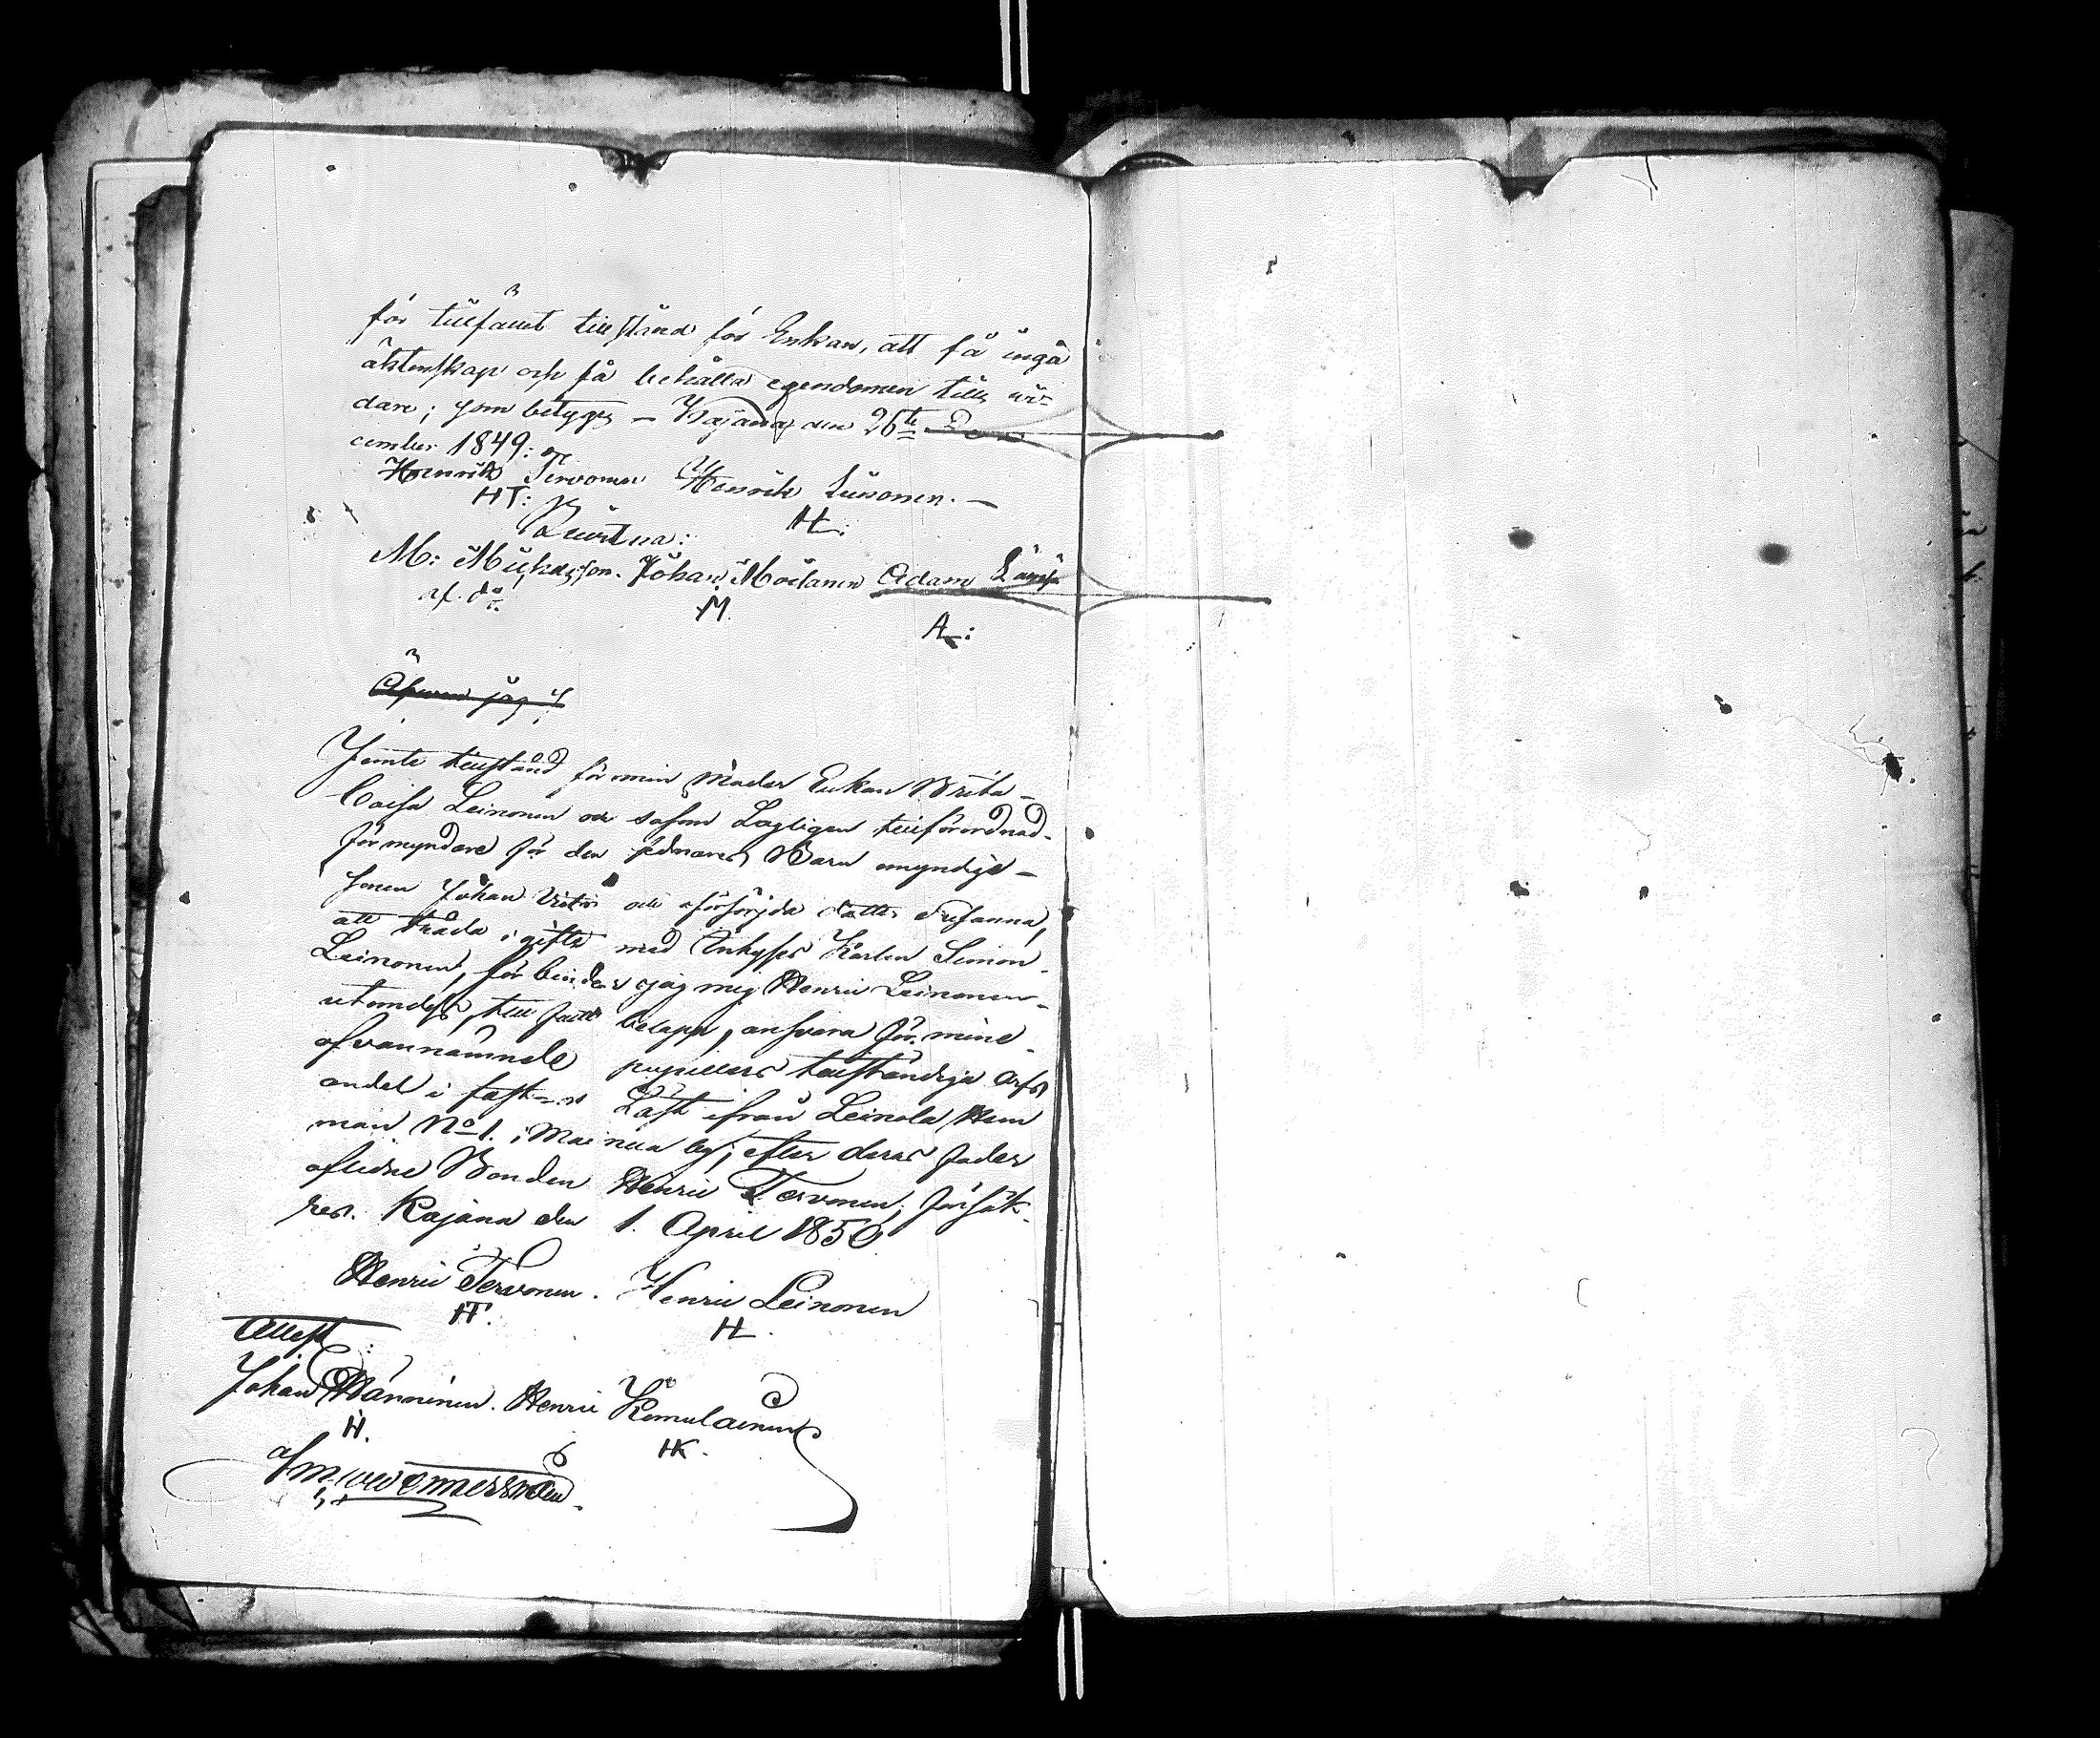 för tillfället tillstånd för Enkan, att få ingå
äktenskap och få behålla egendomen tills wi-
dare; som betygas – Kajana den 26te De
cember 1849:
Henrik Tervonen Henrik Leinonen. –
HT: HL:
M: Mickelsson. Johan Moilanen Adam
af. do M. A:
Äfwen jag
Jemte tillstånd för min Moder Enkan Brita –
Caisa Leinonen och såsom Lagligen tillförordnad
förmyndare för den sednares Barn omyndige –
sonen Johan och oförsörjda dotter Susanna,
att träda i gifte med Enkan Karlen Simon
Leinonen, förbinder jag mig Henric Leinonen
utomdess, till fullt belopp, ansvara för mine
ofvannämnde pupillers tillständiga Arfs
andel i fast och Löst ifrån Leinola Hem
man No 1. i Mainua by, efter deras fader
aflidne Bonden Henric Tervonen; försäk-
ras. Kajana den 1. April 1850
Henric Tervonen. Henric Leinonen
HT. HL.
Attest:
Johan Hänninen. Henric Komulainen
H. HK.